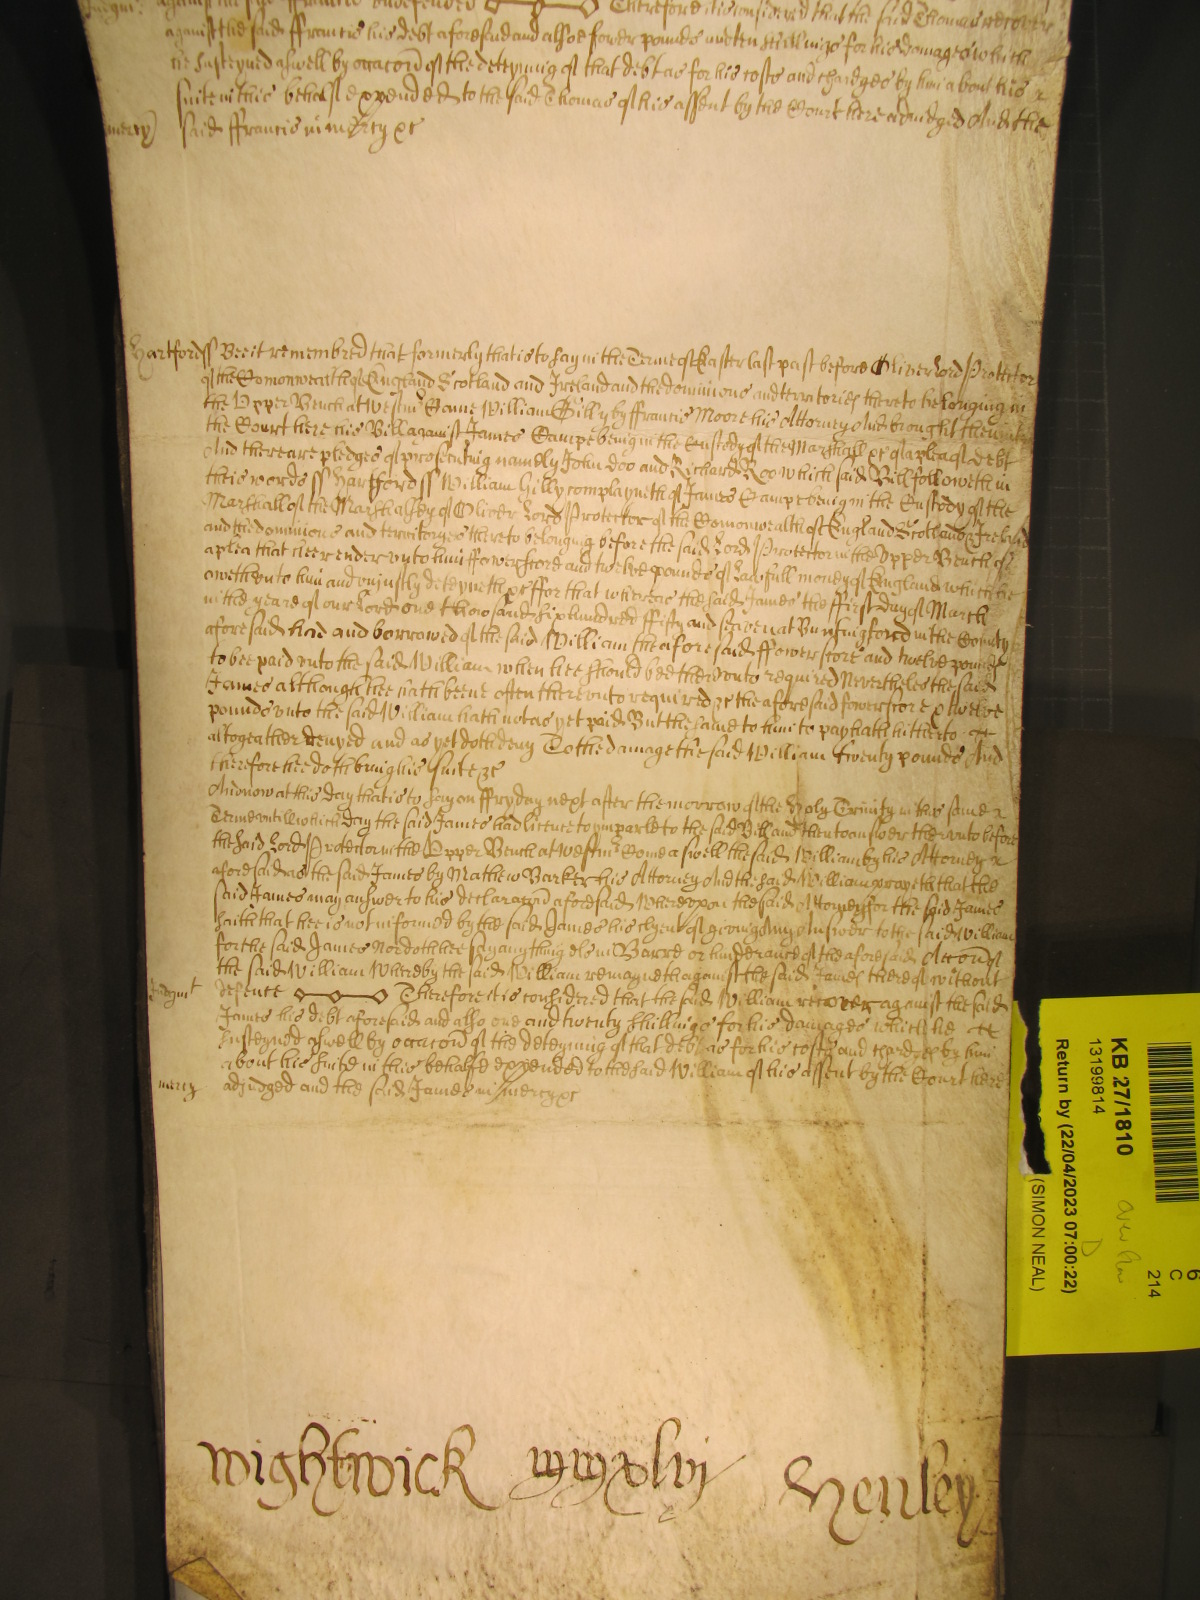 against the said ffrancis undefended Therefore it is considered that the said Thomas recover
against the said ffrancis his debt aforesaid and alsoe fower pounds and ten shillings for his damages which
he susteyned aswell by occacon of the deteyning of that debt as for his costs and chardges by him about his
suite in this behalfe expended to the said Thomas of his assent by the Court here adiudged And the
mercy said ffrancis in mercy &c
Hartford ss Bee it remembred that formerly that is to say in the Terme of Easter last past before Oliver Lord Protector
of the Comonwealth of England Scotland and Ireland and the dominions and territories thereto belonging in
the Upper Bench at Westm Came William Gilly by ffrancis Moore his Attorney And brought then into
the Court here his Bill against James Campe being in the Custody of the Marshall &c of a plea of debt
And there are pledges of prosecuting namely John Doo and Richard Roo which said Bill followeth in
theis words ss Hartford ss William Gilly complayneth of James Campe being in the Custody of the
Marshall of the Marshalsey of Oliver Lord Protector of the Comonwealth of England Scotland & Ireland
and the dominions and territoryes thereto belonging before the said Lord Protector in the Upper Bench of
a plea that hee render unto him ffowerscore and twelve pounds of Lawfull money of England which he
oweth unto him and uniustly deteyneth &c ffor that whereas the said James the ffirst day of March
in the yeare of our Lord one thowsand six hundred ffifty and at Buntingford in the County
aforesaid had and borrowed of the said William the aforesaid ffowerscore and twelve pounds
to bee paid unto the said William when hee should bee thereunto required Nevertheles the said
James although hee hath beene often thereunto required &c the aforesaid fowerscore & twelve
pounds unto the said William hath not as yet paid But the same to him to pay hath hitherto
altogeather denyed and as yet doth deny To the damage the said William twenty pounds And
therefore hee doth bring his suite &c
And now at this day that is to say on ffryday next after the morrow of the Holy Trinity in this same
Terme untill which day the said James had licence to imparle to the said Bill and then to answer thereunto before
the said Lord Protector in the Upper Bench at Westm Come aswell the said William by his Attorney
aforesaid as the said James by Mathew Barker his Attorney And the said William prayeth that the
said James may answer to his declaracon aforesaid Whereupon the said Attorney for the said James
saith that hee is not informed by the said James his clyent of giving Any Answer to the said William
for the said James Nor doth hee say any thing els in Barre or hinderance of the aforesaid Accon of
the said William Whereby the said William remayneth against the said James thereof without
Judgmt defence Therefore it is considered that the said William recover against the said
James his debt aforesaid and also one and twenty shillings for his damages which he
susteyned aswell by occacon of the deteyning of that debt as for his costs and chardges by him
about his suite in this behalfe expended to the said William of his assent by the Court here
mercy adiudged and the said James in mercy &c
Wightwick mmxlvi Henley
6
C
214
KB 27/1810
13199814
Return by (22/04/2023 07:00:22)
D
(SIMON NEAL)